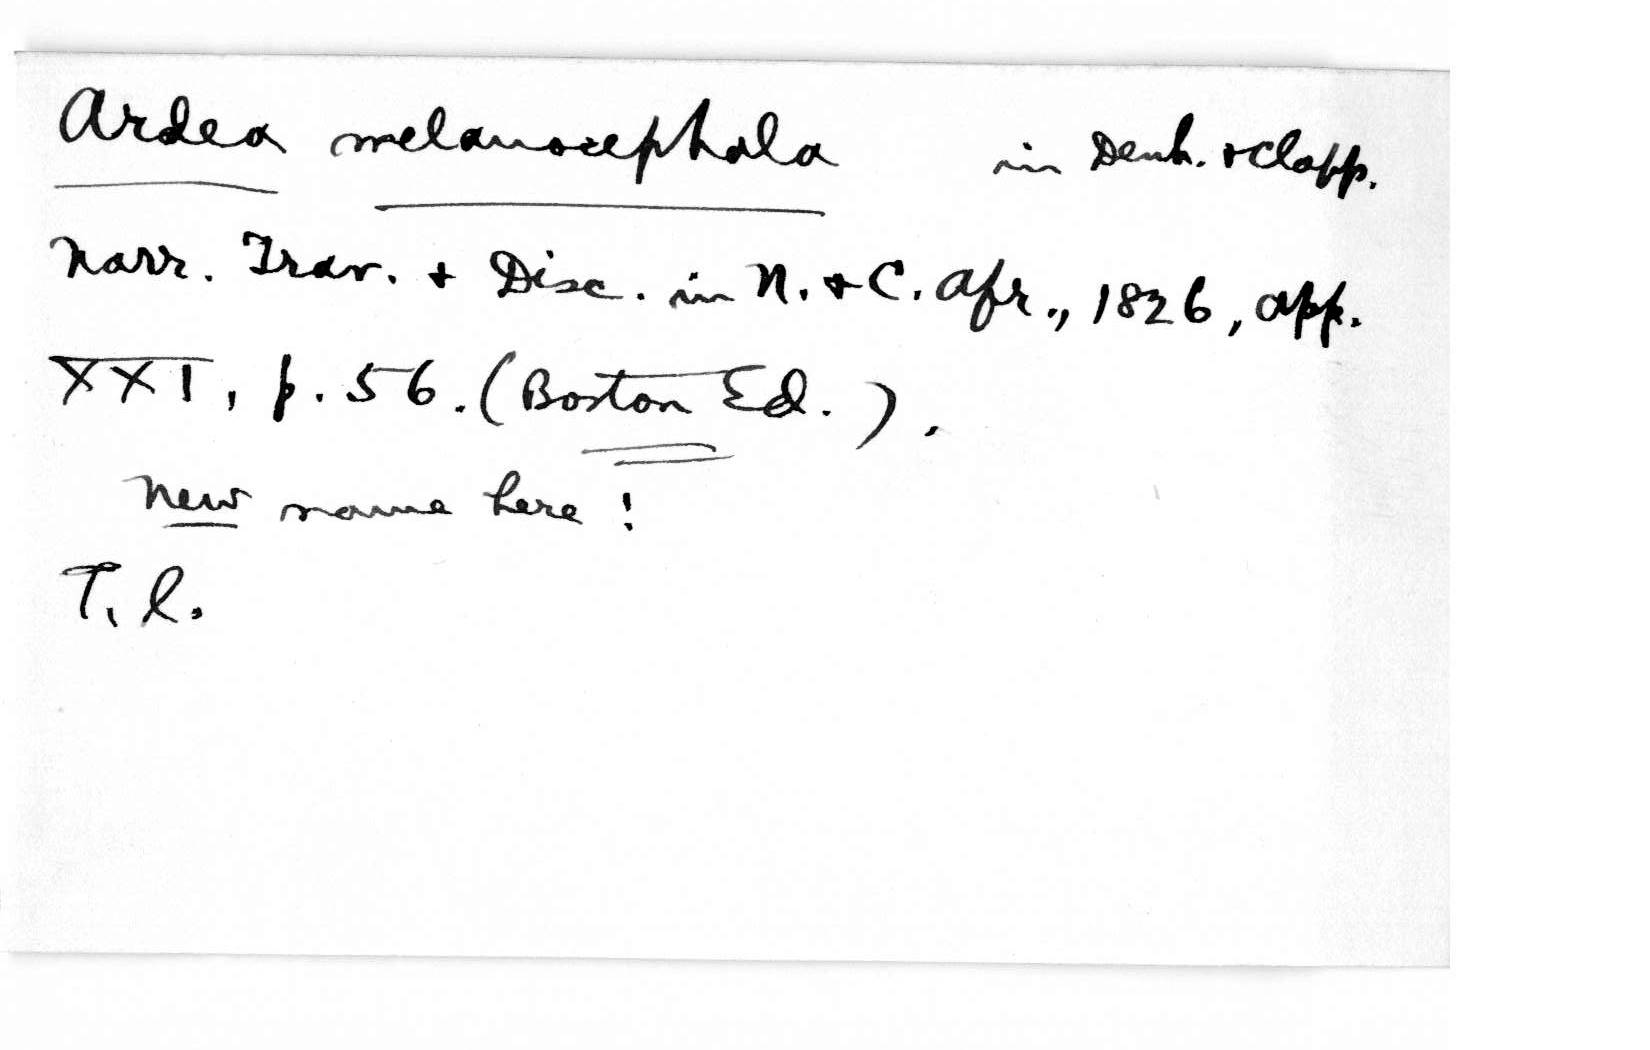 Ardea melanocephala in Denh. + Clapp.
Narr. Trav. + Disc. in N. + C. Afr., 1826, App.
XXI, p. 56. (Boston Ed.).
New name here!
T. l.